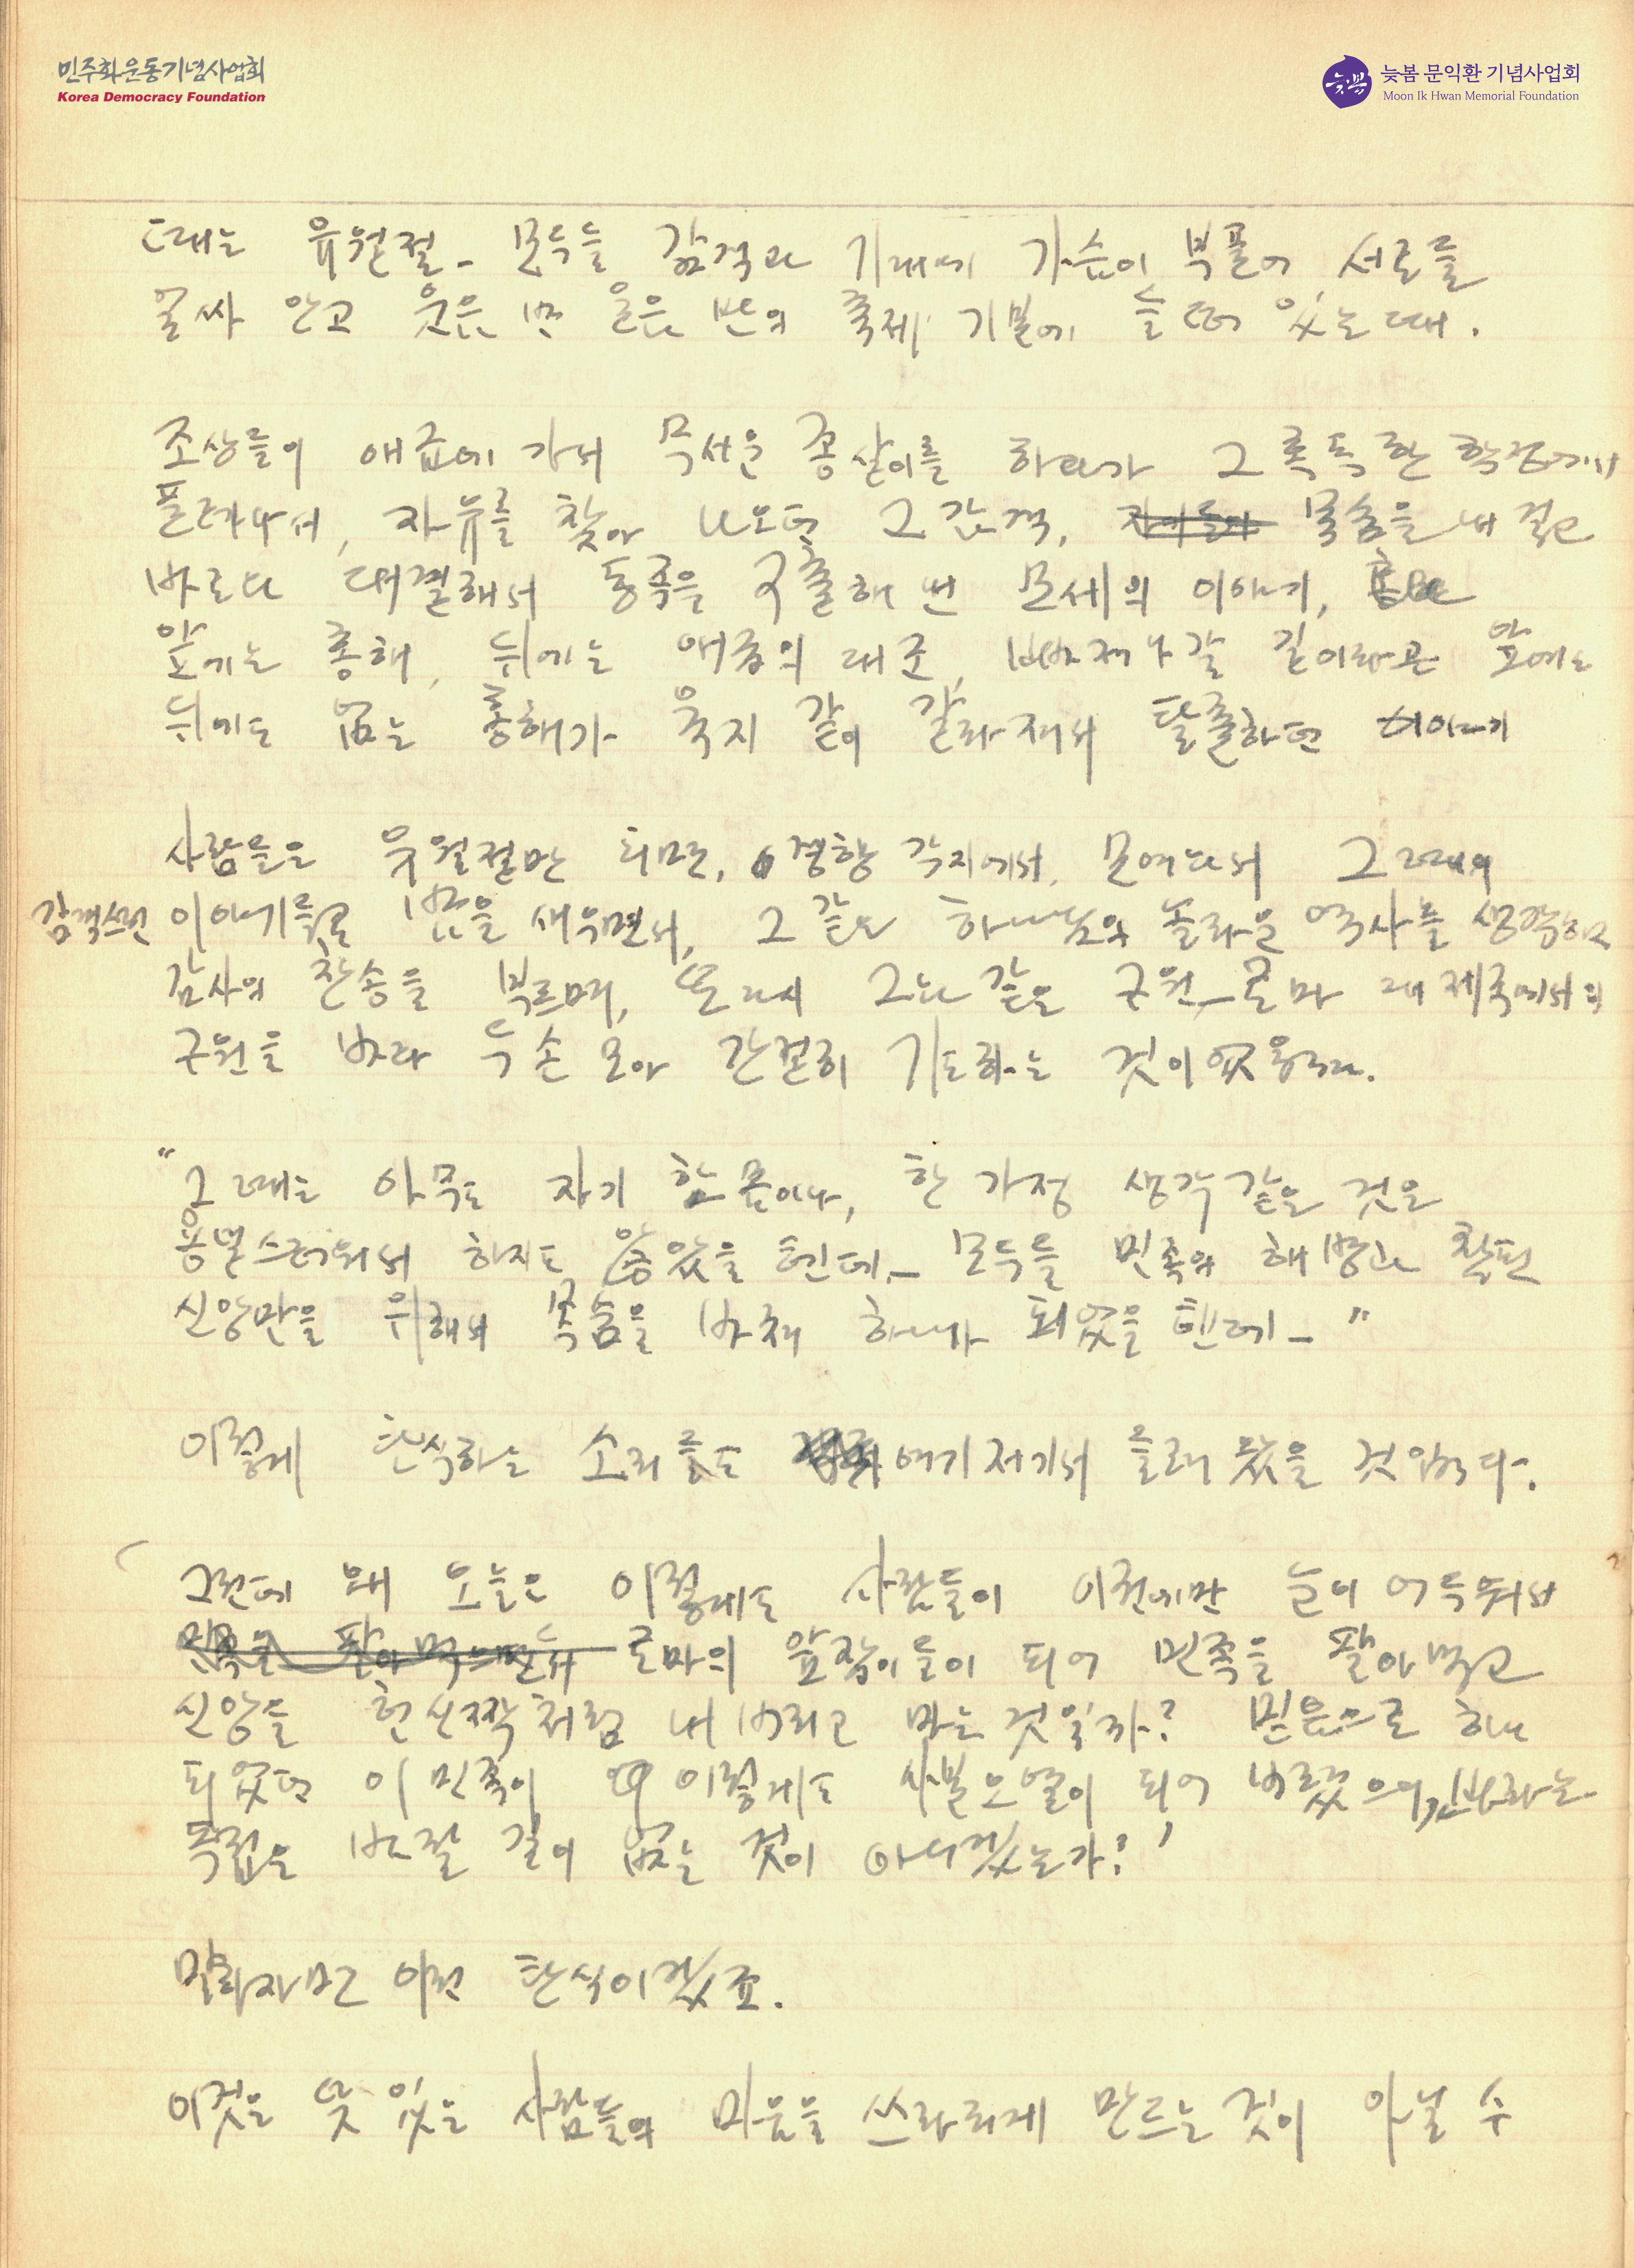 민주화운동기념사업회
Korea Democracy Foundation
늦봄
늦봄 문익환 기념사업회
Moon Ik Hwan Memorial Foundation
때는 유월절 - 모두들 감격과 기대에 가슴이 부풀어 서로를
얼싸 안고 웃음 반 울음 반의 축제 기분에 들떠 있는 때.
조상들이 애급에 가서 무서운 종살이를 하다가 그 혹독한 학정에서
풀려나서, 자유를 찾아 나오던 그 감격, 목숨을 내 걸고
바로와 대결해서 동족을 구출해 낸 모세의 이야기,
앞에는 홍해, 뒤에는 애급의 대군, 빠져나갈 길이라곤 앞에도
뒤에도 없는 홍해가 육지 같이 갈라져서 탈출하던 이야기
사람들은 유월절만 되면, 경향 각지에서 모여와서 그 때의
감격스런 이야기들로 밤을 새우면서, 그 같은 하나님의 놀라운 역사를 생각하고
감사의 찬송을 부르며, 또 다시 그와 같은 구원 - 로마 대 제국에서의
구원을 바라 두 손 모아 간절히 기도하는 것이었읍니다.
"그 때는 아무도 자기 한 몸이나, 한 가정 생각 같은 것은
용렬스러워서 하지도 않았을 텐데 - 모두들 민족의 해방과
신앙만을 위해서 목숨을 바쳐 하나가 되었을 텐데 - "
이렇게 탄식하는 소리들도 여기 저기서 들려 왔을 것입니다.
그런데 왜 오늘은 이렇게도 사람들이 이권에만 눈이 어두워서
로마의 앞잡이들이 되어 민족을 팔아 먹고
신앙을 헌신짝처럼 내 버리고 마는 것일까? 믿음으로 하나
되었던 이 민족이 왜 이렇게도 사분오열이 되어 버렸으며,
독립은 바랄 길이 없는 것이 아니겠는가?'
말하자면 이런 탄식이겠죠.
이것은 뜻 있는 사람들의 마음을 쓰라리게 만드는 것이 아닐 수